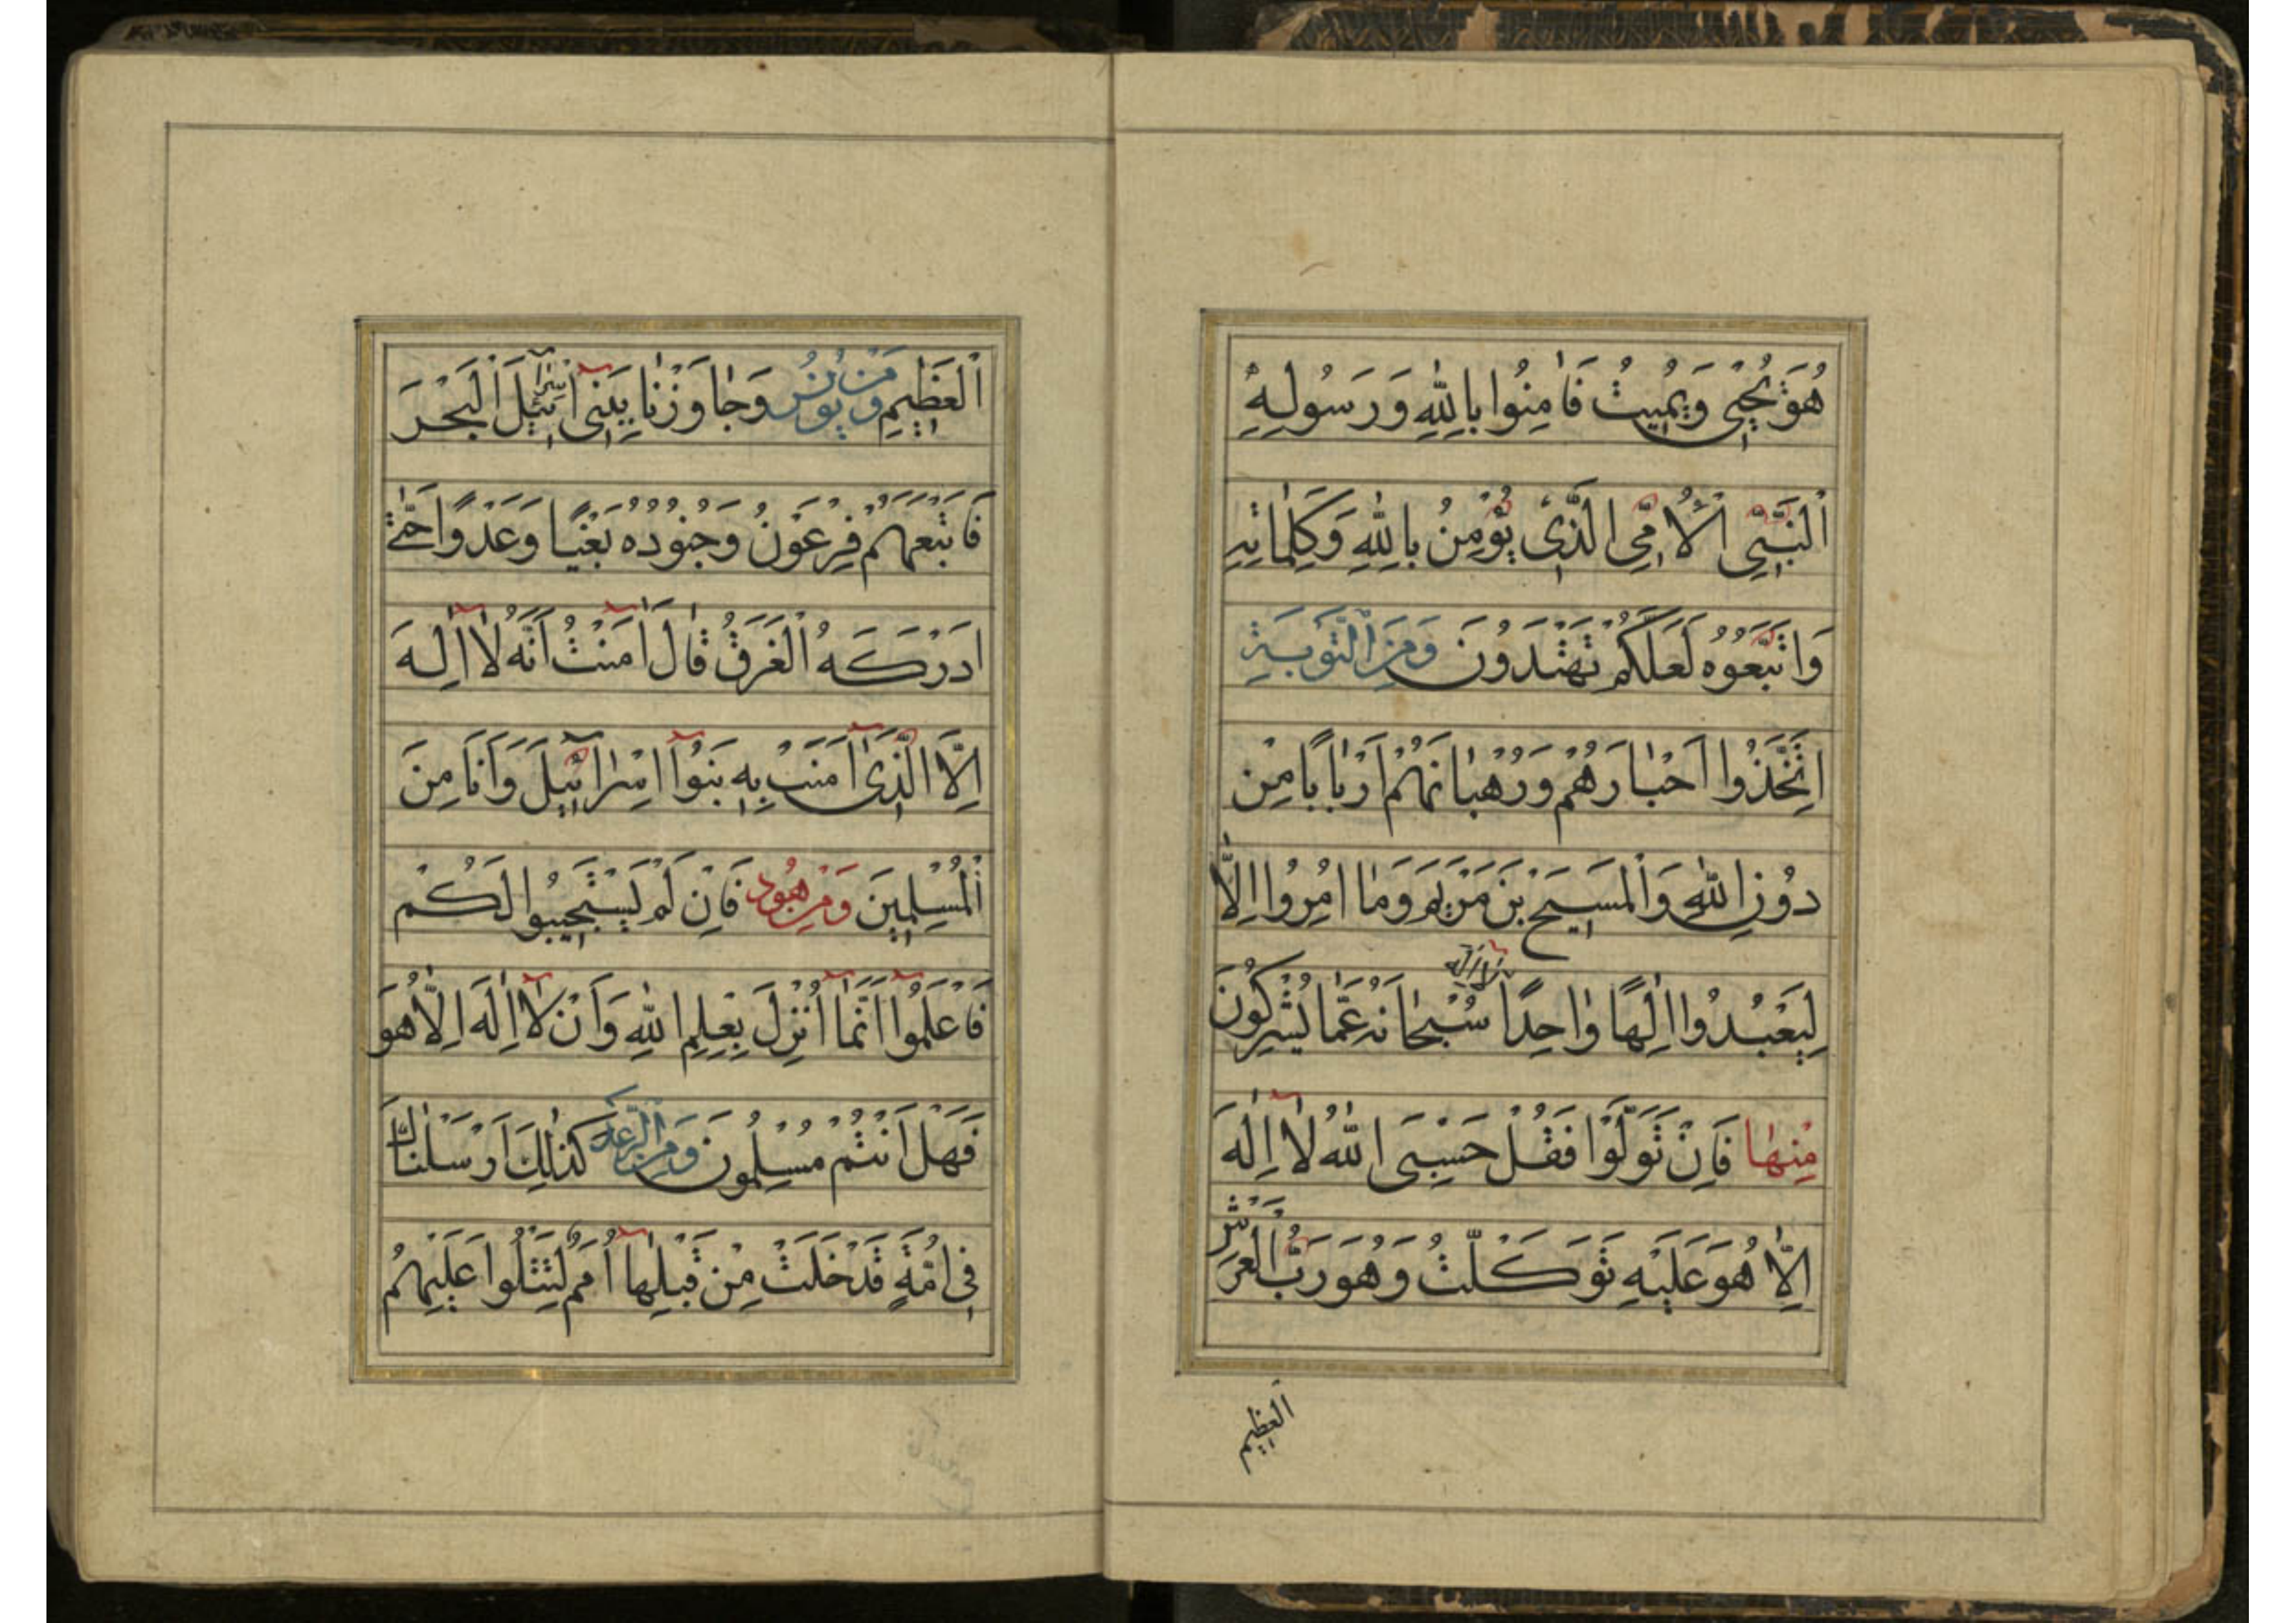 هُوَ يُحْيِى وَيُمِيتُ فَاٰمِنُوا بِاللهِ وَرَسُولِهِ
اَلنَّبِيِّ الْاُمِّىِّ الَّذِى يُؤْمِنُ بِاللهِ وَكَلِمَاتِهِ
وَاتَّبَعُوهُ لَعَلَّكُمْ تَهْتَدُونَ وَمِنَ التَّوْبَةِ
اِتَّخَذُوا اَحْبَارَهُمْ وَرُهْبَانَهُمْ اَرْبَابًا مِنْ
دُونِ اللهِ وَالْمَسِيحَ بْنَ مَرْيَمَ وَمَا اُمِرُوا اِلَّا
لِيَعْبُدُوا اِلٰهًا وٰاحِدًا لَا اِلٰهَ سُبْحَانَهُ عَمَّا يُشْرِكُونَ
مِنْهٰا فَاِنْ تَوَلَّوْا فَقُلْ حَسْبِىَ اللهُ لَا اِلٰهَ
اِلَّا هُوَ عَلَيْهِ تَوَكَّلْتُ وَهُوَ رَبُّ الْعَرْشِ
الْعَظِيمِ
اَلْعَظِيمِ وَمِنْ يُونُسَ وَجَاوَزْنَا بِبَنِى اِسْرَائِيلَ الْبَحْرَ
فَاَتْبَعَهُمْ فِرْعَوْنُ وَجُنُودُهُ بَغْيًا وَعَدْوًا حَتّٰى
اَدْرَكَهُ الْغَرَقُ قٰالَ اٰمَنْتُ اَنَّهُ لَا اِلٰهَ
اِلَّا الَّذِى اٰمَنَتْ بِهِ بَنُوا اِسْرَائِيلَ وَاَنَا مِنَ
الْمُسْلِمِينَ وَمِنْ هُودٍ فَاِنْ لَمْ يَسْتَجِيبُوا لَكُمْ
فَاعْلَمُوا اَنَّمَا اُنْزِلَ بِعِلْمِ اللهِ وَاَنْ لَا اِلٰهَ اِلَّا هُوَ
فَهَلْ اَنْتُمْ مُسْلِمُونَ وَمِنَ الرَّعْدِ كَذٰلِكَ اَرْسَلْنَاكَ
فِى اُمَّةٍ قَدْ خَلَتْ مِنْ قَبْلِهَا اُمَمٌ لِتَتْلُوا عَلَيْهِمُ